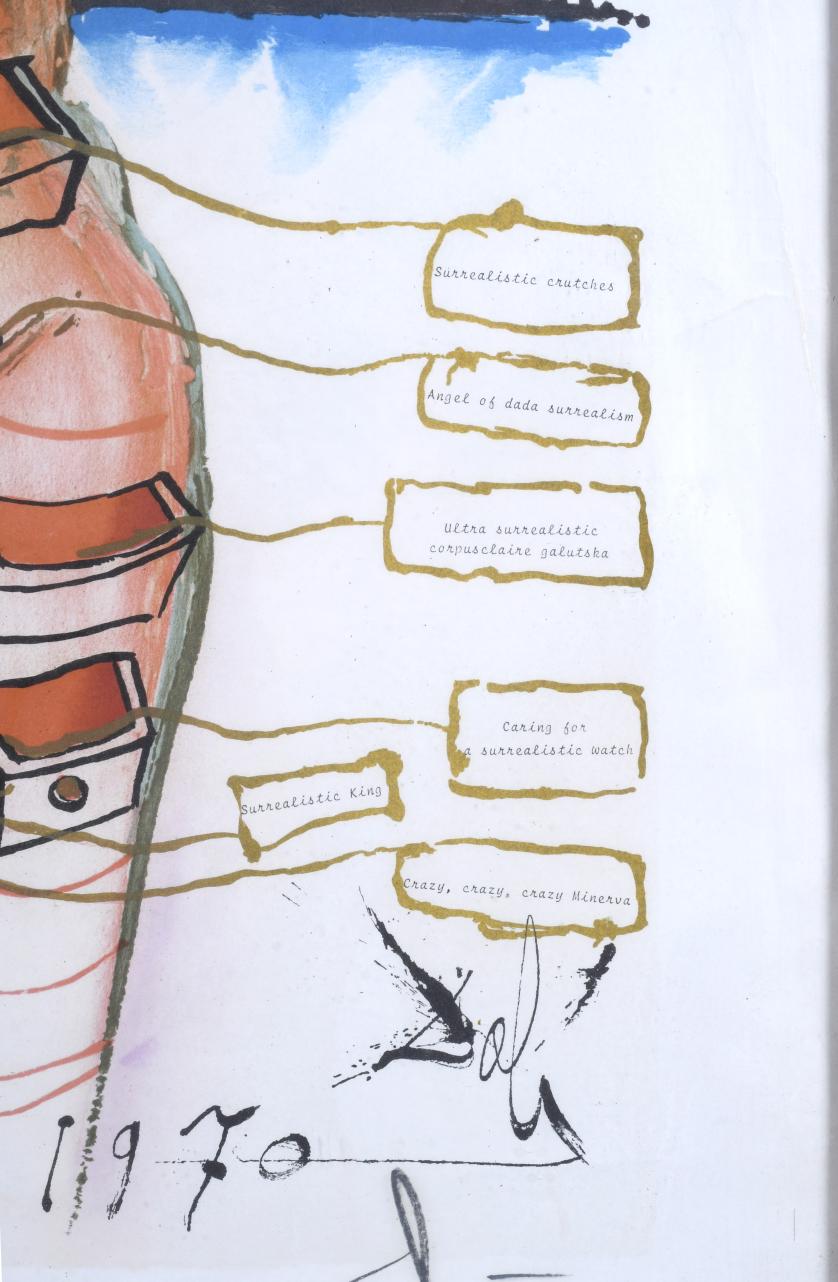 Surrealistic crutches
Angel of dada surrealism
Ultra surrealistic
corpusclaire galutska
Caring for
a surrealistic watch
Surrealistic King
Crazy, crazy, crazy Minerva
Dalí
1970